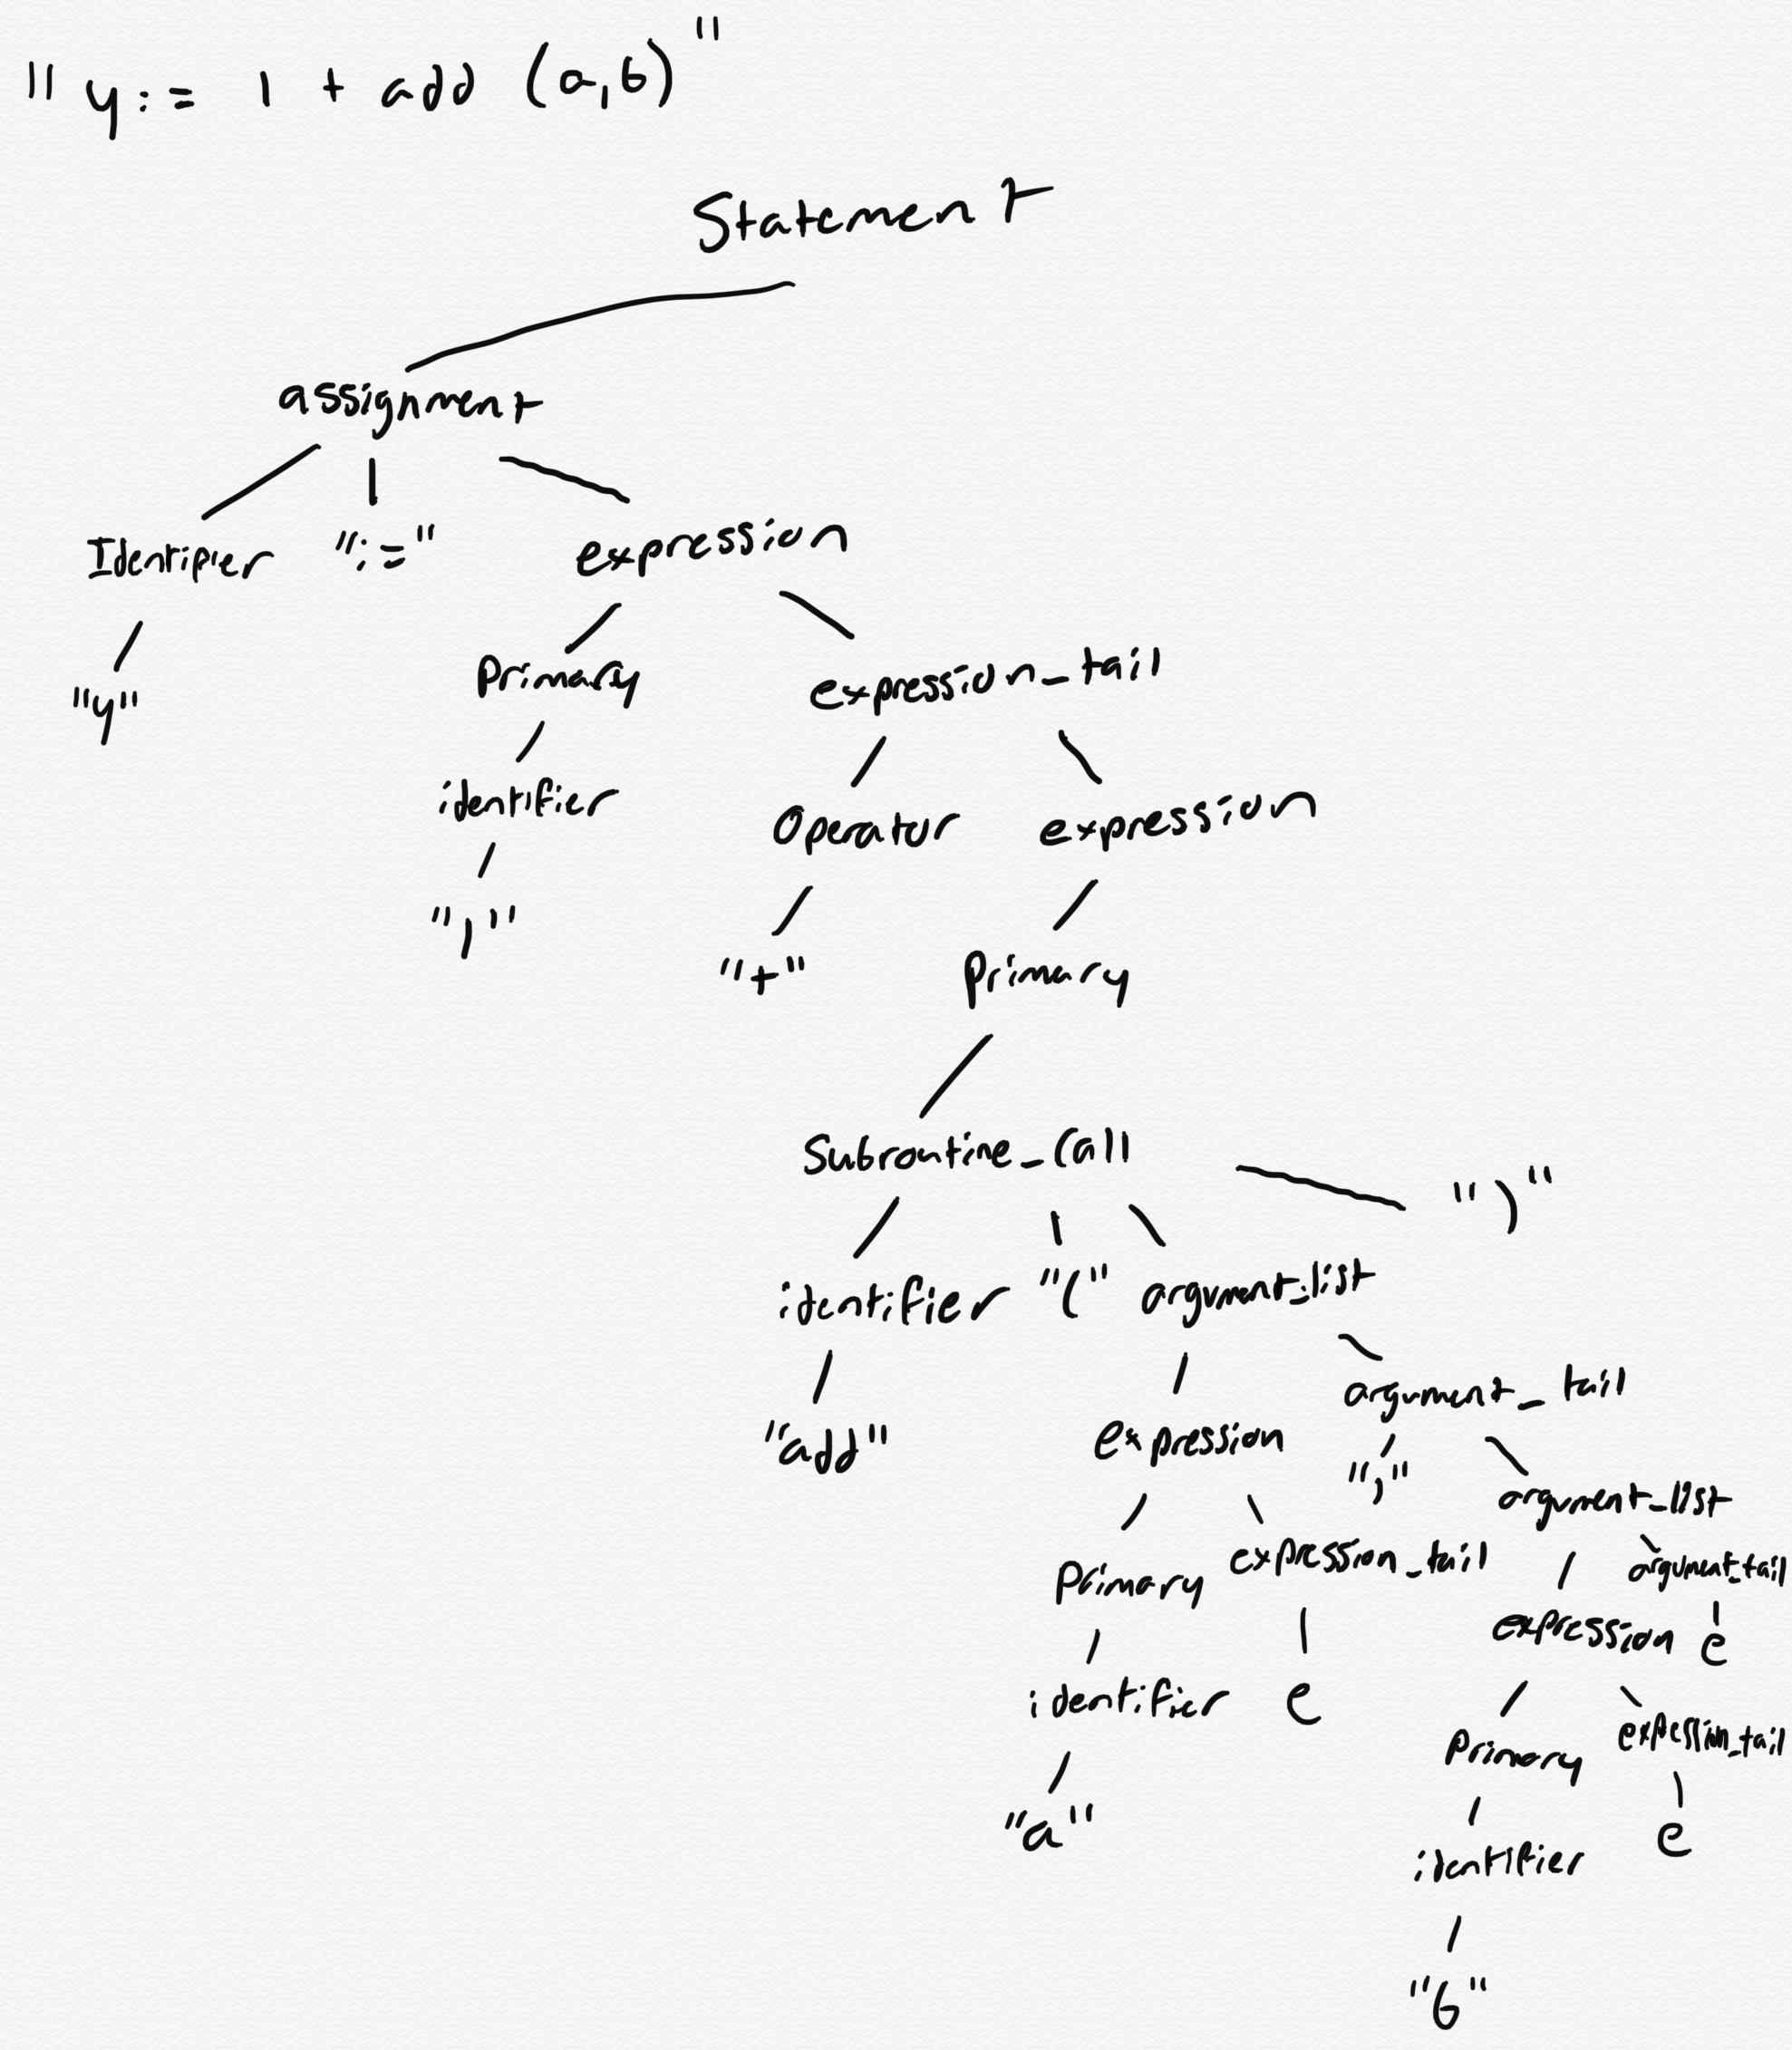 "y:= 1 + add (a,b)"
Statement
assignment
Identifier ":=" expression
"y" Primary expression_tail
identifier Operator expression
"1" "+" Primary
Subroutine_call ")"
identifier "(" argument_list
"add" expression argument_tail
"," argument_list
Primary expression_tail argument_tail
identifier e expression e
"a" Primary expression_tail
identifier e
"b"